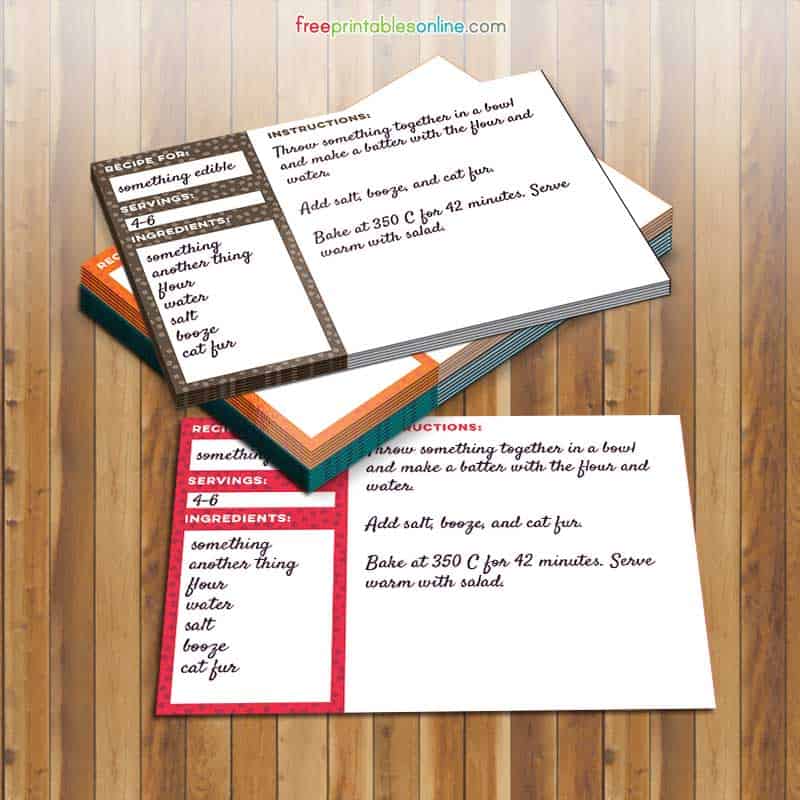 freeprintablesonline.com
RECIPE FOR:
something edible
SERVINGS:
4-6
INGREDIENTS:
something
another thing
flour
water
salt
booze
cat fur
INSTRUCTIONS:
Throw something together in a bowl
and make a batter with the flour and
water.
Add salt, booze, and cat fur.
Bake at 350 C for 42 minutes. Serve
warm with salad.
REC
RECI
something
SERVINGS:
4-6
INGREDIENTS:
something
another thing
flour
water
salt
booze
cat fur
UCTIONS:
Throw something together in a bowl
and make a batter with the flour and
water.
Add salt, booze, and cat fur.
Bake at 350 C for 42 minutes. Serve
warm with salad.